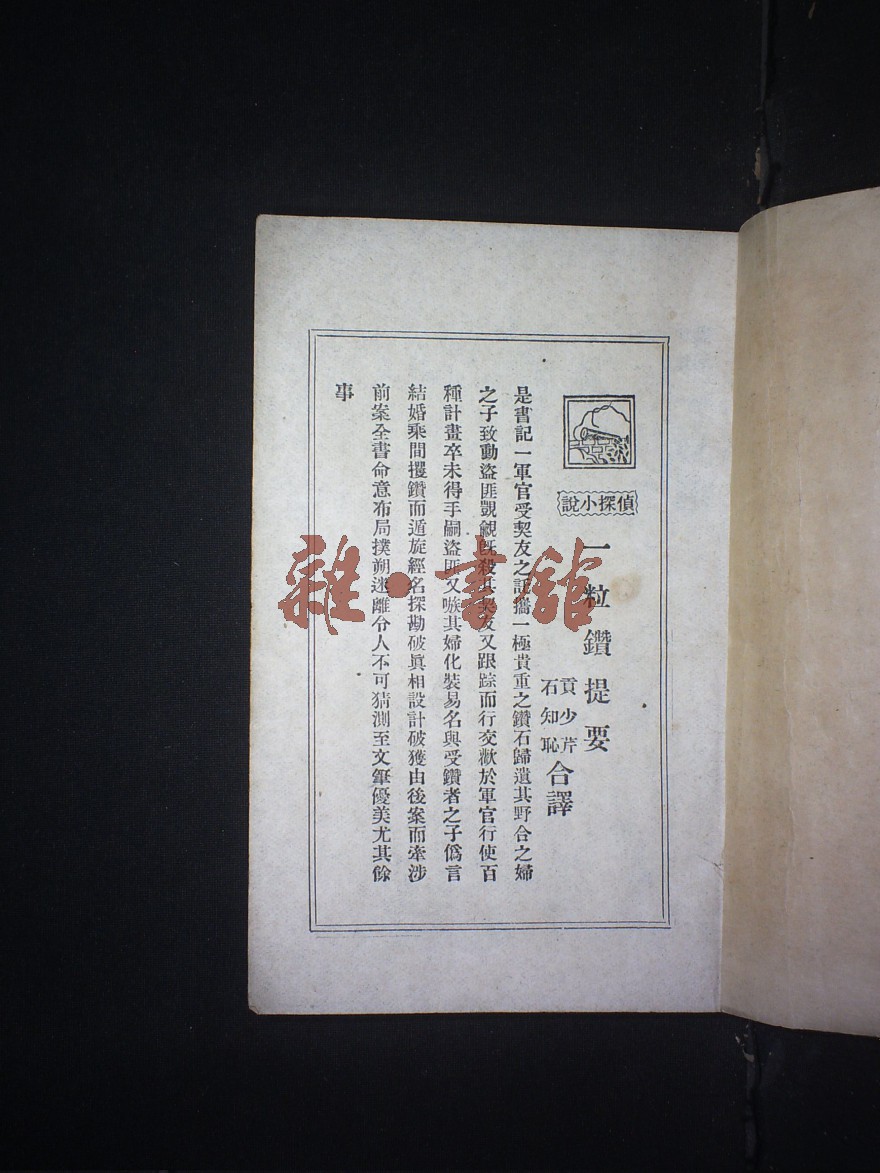 說小探偵
一粒鑽提要
貢少芹
石知恥
合譯
是書記一軍官受契友之託攜一極貴重之鑽石歸遺其野合之婦
之子致動盜匪覬覦旣殺其契友又跟踪而行交歡於軍官行使百
種計畫卒未得手嗣盜匪又嗾其婦化裝易名與受鑽者之子僞言
結婚乘間攫鑽而遁旋經名探勘破眞相設計破獲由後案而牽涉
前案全書命意布局撲朔迷離令人不可猜測至文筆優美尤其餘
事
雜·書館